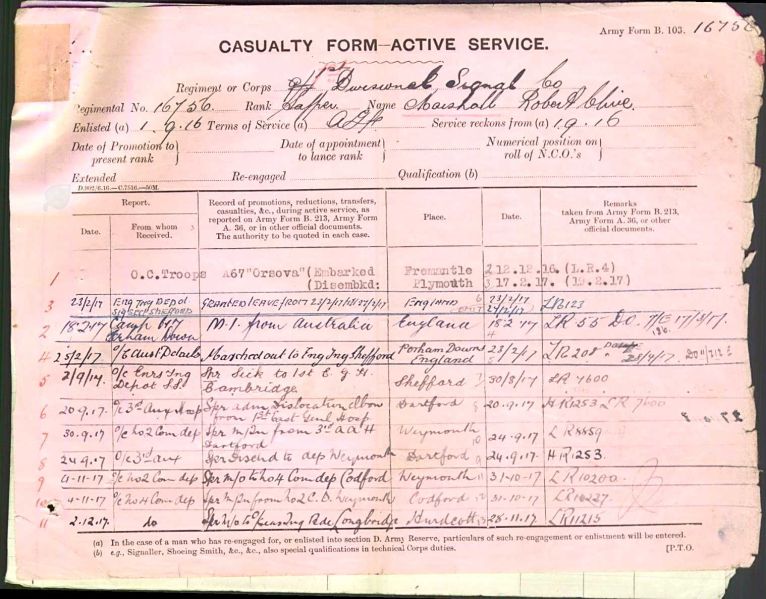 Army Form B. 103. 16756
CASUALTY FORM—ACTIVE SERVICE.
Regiment or Corps 1st Divisional Signal Co
Regimental No. 16756 Rank Sapper Name Marshall Robert Clive
Enlisted (a) 1.9.16 Terms of Service (a) AIF Service reckons from (a) 1.9.16
Date of Promotion to present rank } Date of appointment to lance rank } Numerical position on roll of N.C.O.'s }
Extended Re-engaged Qualification (b)
D.902/6.16.—C.7516.—50M.
Report. Record of promotions, reductions, transfers, casualties, &c., during active service, as reported on Army Form B. 213, Army Form A. 36, or in other official documents. The authority to be quoted in each case. Place. Date. Remarks taken from Army Form B. 213, Army Form A. 36, or other official documents.
Date. From whom Received.
1 O.C. Troops A67 "Orsova" (Embarked Fremantle 12.12.16. (L.R.4)
(Disembkd: Plymouth 17.2.17. (19.2.17)
3 23/2/17 Eng Tng Depot Granted leave from 23/2/17 England 23/2/17 LR123
2 18.2.17 Camp M.I. from Australia England 18.2.17 LR 55 D.O.
4 25/2/17 Marched out to Eng Tng Shefford Perham Downs England 23/2/17 LR 208
5 2/9/17. O/c Enrs Tng Depot Spr Sick to 1st E. G. H. Cambridge Shefford 30/8/17 LR 7600
6 20.9.17. O/c 3rd Aux Hosp Spr adm Dislocation Elbow from 1st East Genl Hosp Dartford 20.9.17 HR1253 LR 7600
7 30.9.17. O/c No 2 Com dep Spr M/In from 3rd A A H Dartford Weymouth 24.9.17 LR8859
8 24.9.17 O/c 3rd Aux Spr Discd to dep Weymouth Dartford 24.9.17 HR1253.
9 4-11-17 O/c No2 Com dep Spr M/O to No 4 Com dep Codford Weymouth 31-10-17 LR10200
10 4-11-17 O/c No4 Com dep Spr M/In from No2 C.D. Weymouth Codford 31-10-17 LR10227
11 2.12.17. do Spr M/O to O/seas Tng Bde Longbridge Hurdcott 28-11-17 LR11215
(a) In the case of a man who has re-engaged for, or enlisted into section D. Army Reserve, particulars of such re-engagement or enlistment will be entered.
(b) e.g., Signaller, Shoeing Smith, &c., &c., also special qualifications in technical Corps duties. [P.T.O.